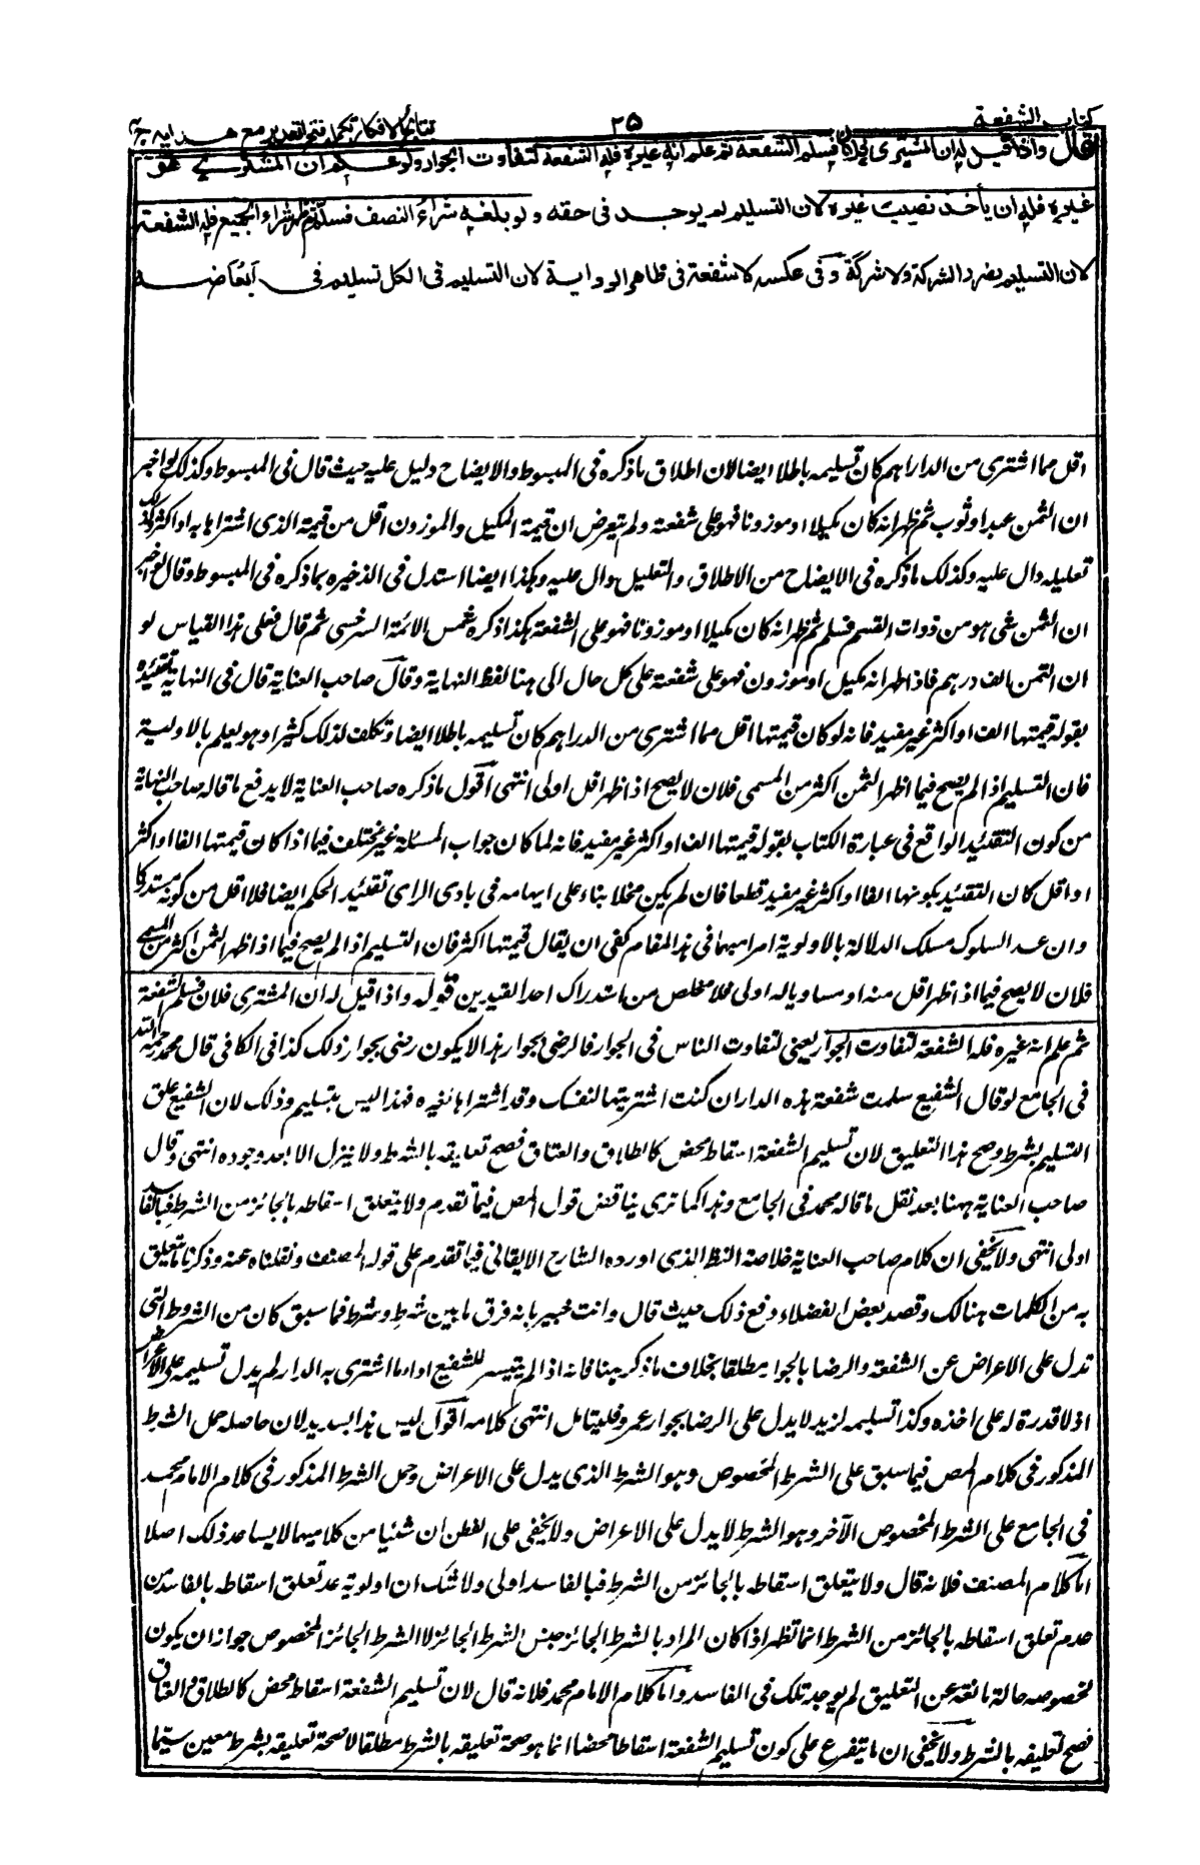 كتاب الشفعة
٢٥
نتائج الافكار تكملة فتح القدير مع هدايه ج
قال واذا قيل له ان المشترى فلان فسلم الشفعة ثم علم انه غيره فله الشفعة لتفاوت الجوار ولو علم ان المشترى هو
غيره فله ان يأخذ نصيب غيره لان التسليم لم يوجد فى حقه ولو بلغه شراء النصف فسلم ثم ظهر شراء الجميع فله الشفعة
لان التسليم لضرر الشركة ولا شركة وفى عكسه لا شفعة فى ظاهر الرواية لان التسليم فى الكل تسليم فى ابعاضه
اقل مما اشترى من الدراهم كان تسليمه باطلا ايضا لان اطلاق ماذكره فى المبسوط والايضاح دليل عليه حيث قال فى المبسوط وكذلك لو اخبر
ان الثمن عبد او ثوب ثم ظهر انه كان مكيلا او موزونا فهو على شفعته ولم يتعرض ان قيمة المكيل والموزون اقل من قيمة الذى اشتراها به او اكثر وكذلك
تعليله دال عليه وكذلك ماذكره فى الايضاح من الاطلاق والتعليل دال عليه وبهذا ايضا استدل فى الذخيره بماذكره فى المبسوط وقال لو اخبر
ان الثمن شئ هو من ذوات القيم فسلم ثم ظهر انه كان مكيلا او موزونا فهو على الشفعة هكذا ذكره شمس الائمة السرخسى ثم قال فعلى هذا القياس لو
ان الثمن الف درهم فاذا ظهر انه مكيل او موزون فهو على شفعته على كل حال الى هنا لفظ النهاية وقال صاحب العناية قال فى النهاية تقييده
بقوله قيمتها الف او اكثر غير مفيد فانه لو كان قيمتها اقل مما اشترى من الدراهم كان تسليمه باطلا ايضا وتكلف لذلك كثيرا وهو يعلم بالاولوية
فان التسليم اذا لم يصح فيما اظهر الثمن اكثر من المسمى فلان لا يصح اذا ظهر اقل اولى انتهى اقول ماذكره صاحب العناية لا يدفع ما قاله صاحب النهاية
من كون التقييد الواقع فى عبارة الكتاب بقوله قيمتها الف او اكثر غير مفيد فانه لما كان جواب المسئلة غير مختلف فيما اذا كان قيمتها الفا او اكثر
او اقل كان التقييد بكونها الفا او اكثر غير مفيد قطعا فان لم يكن مخلا بناء على ايهامه فى بادى الراى تقييد الحكم ايضا فلا اقل من كونه مستدركا
وان عد السلوك مسلك الدلالة بالاولوية امرا مهما فى هذا المقام كفى ان يقال قيمتها اكثر فان التسليم اذا لم يصح فيما اذا ظهر الثمن اكثر من المسمى
فلان لا يصح فيما اذا ظهر اقل منه او مساويا له اولى فلا مخلص من استدراك احد القيدين قوله واذا قيل له ان المشترى فلان فسلم الشفعة
ثم علم انه غيره فله الشفعة لتفاوت الجوار يعنى لتفاوت الناس فى الجوار فالرضى بجوار هذا لا يكون رضى بجوار ذلك كذا فى الكافى قال محمد رحمه الله
فى الجامع لو قال الشفيع سلمت شفعة هذه الدار ان كنت اشتريتها لنفسك وقد اشتراها لغيره فهذا ليس بتسليم وذلك لان الشفيع علق
التسليم بشرط وصح هذا التعليق لان تسليم الشفعة اسقاط محض كالطلاق والعتاق فصح تعليقه بالشرط ولا ينزل الا بعد وجوده انتهى وقال
صاحب العناية ههنا بعد نقل ما قاله محمد فى الجامع وهذا كما ترى يناقض قول المص فيما تقدم ولا يتعلق اسقاطه بالجائز من الشرط فبالفاسد
اولى انتهى ولا يخفى ان كلام صاحب العناية خلاصة النظر الذى اورده الشارح الاتقانى فيما تقدم على قول المصنف ونقلناه عنه وذكرنا ما يتعلق
به من الكلمات هنالك وقصد بعض الفضلاء دفع ذلك حيث قال وانت خبير بانه فرق ما بين شرط وشرط فما سبق كان من الشروط التى
تدل على الاعراض عن الشفعة والرضا بالجوار مطلقا بخلاف ماذكر هنا فانه اذا لم يتيسر للشفيع اداء ما اشترى به الدار لم يدل تسليمه على الاعراض
اذ لا قدرة له على اخذه وكذا تسليمه لزيد لا يدل على الرضا بجوار عمرو فليتامل انتهى كلامه اقول ليس هذا بسديد لان حاصله حمل الشرط
المذكور فى كلام المص فيما سبق على الشرط المخصوص وهو الشرط الذى يدل على الاعراض وحمل الشرط المذكور فى كلام الامام محمد
فى الجامع على الشرط المخصوص الآخر وهو الشرط لا يدل على الاعراض ولا يخفى على الفطن ان شيئا من كلاميهما لا يساعد ذلك اصلا
اما كلام المصنف فلانه قال ولا يتعلق اسقاطه بالجائز من الشرط فبالفاسد اولى ولا شك ان اولوية عدم تعلق اسقاطه بالفاسد من
عدم تعلق اسقاطه بالجائز من الشرط انما تظهر اذا كان المراد بالشرط الجائز جنس الشرط الجائز لا الشرط الجائز المخصوص جواز ان يكون
لخصوصه حالة مانعة عن التعليق لم يوجد تلك فى الفاسد واما كلام الامام محمد فلانه قال لان تسليم الشفعة اسقاط محض كالطلاق والعتاق
فصح تعليقه بالشرط ولا يخفى ان ما يتفرع على كون تسليم الشفعة اسقاطا محضا انما هو صحة تعليقه بالشرط مطلقا لا صحة تعليقه بشرط معين سيما